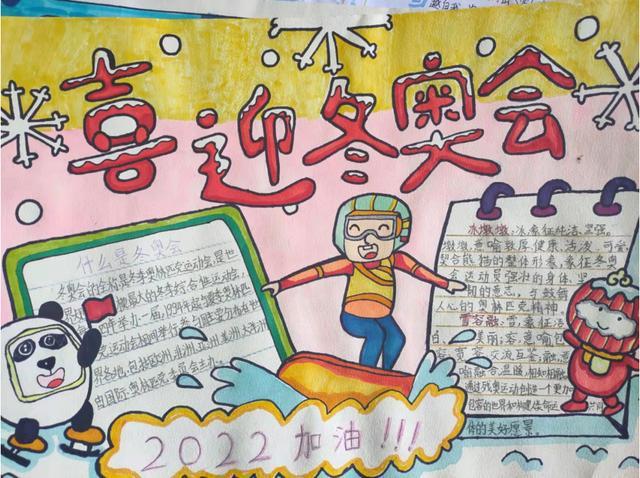 喜迎冬奥会
什么是冬奥会
冬奥会的全称是冬季奥林匹克运动会,是世
界规模最大的冬季综合性运动会,
四年举办一届,1994年起
界各地,包括欧洲,非洲,亚洲,美洲,大洋洲
由国际奥林匹克委员会主办。
冰墩墩:冰象征纯洁、坚强。
墩墩,意喻敦厚、健康、活泼、可爱,
契合熊猫的整体形象,象征冬奥
会运动员强壮的身体、坚
韧的意志,与鼓舞
人心的奥林匹克精神
雪容融:雪,象征洁
白、美丽;容,意喻包
容、宽容、交流互鉴;融,意
喻融合、温暖,相知相融
通过残奥运动创造一个更加
包容的世界和构建人类命运共同
体的美好愿景。
2022加油!!!